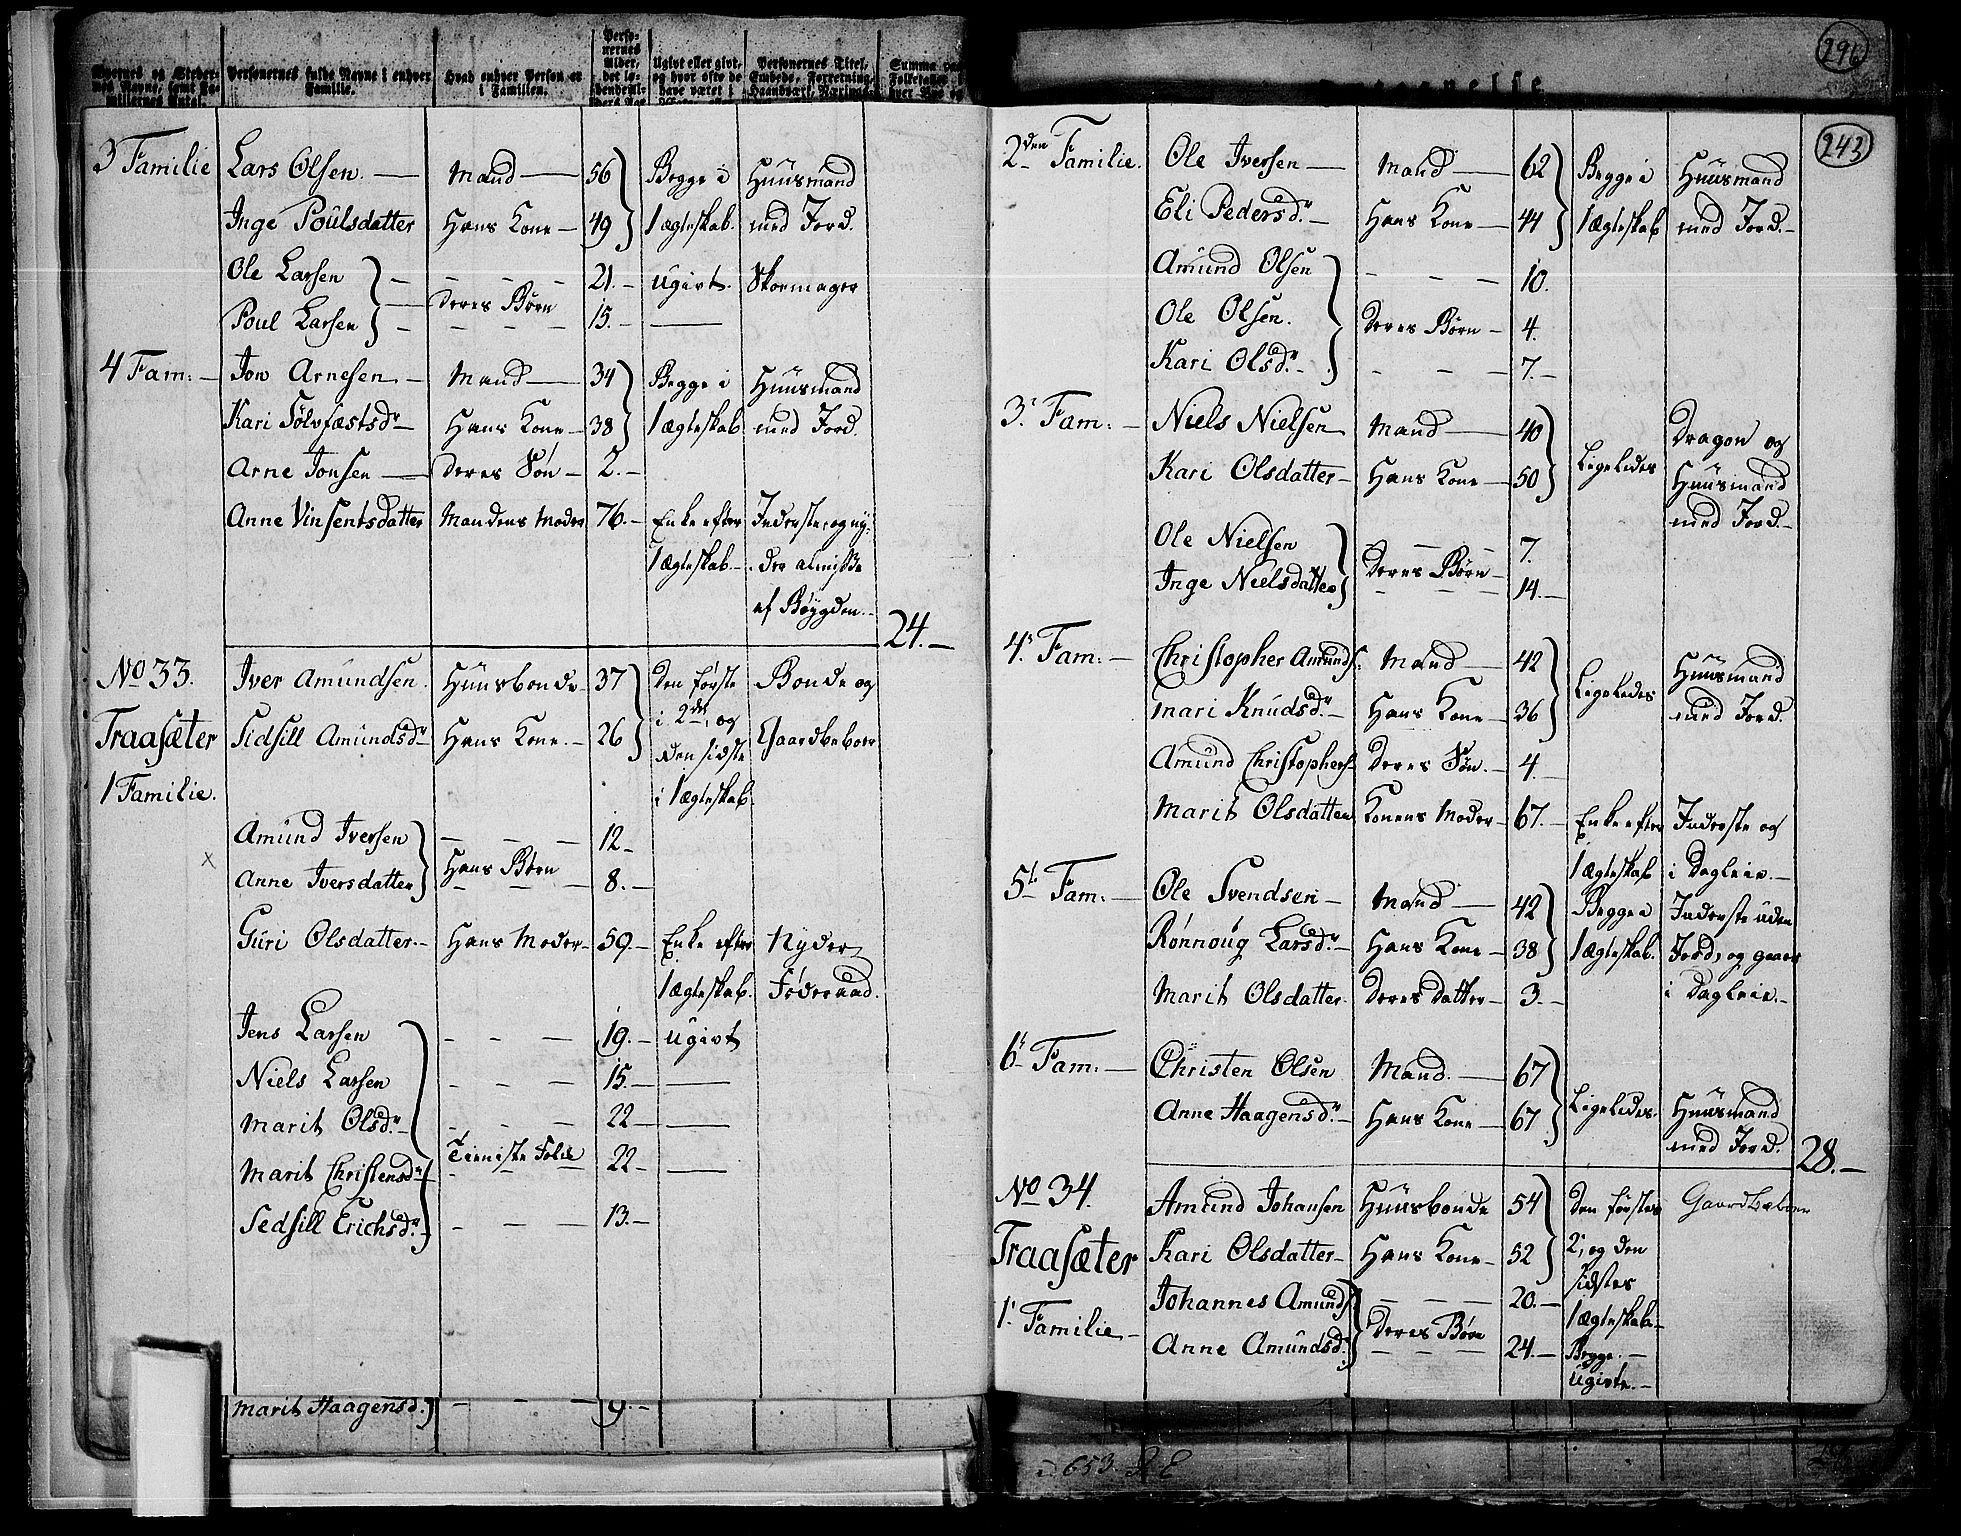 3 Familie Lars Olsen. — Mand — 56 Begge i Huusmand
Inge Poulsdatter Hans Kone — 49 1 ægteskab. med Jord.
Ole Larsen — — — 21. — ugivt. Skoemager
Poul Larsen Deres Børn 15. — —
4 Fam: — Jon Arnesen. — Mand — 34 Begge i Huusmand
Kari Sølvfæstsdr — Hans Kone — 38 1 ægteskab med Jord.
Arne Jonsen — Deres Søn — 2. —
Anne Vinsentsdatter Mandens Moder 76. — Enke efter Inderste, og ny-
1 ægteskab. — der almisse
af Bøygden. —
24. —
No 33. Iver Amundsen. Huusbonde 37 Den første Bonde og
Traasæter Sidsill Amundsdr Hans Kone. — 26 i 2det, og Gaardbeboer
den sidste
1 Familie. i 1 ægteskab.
Amund Iversen — — — 12 —
Anne Iversdatter Hans Børn 8. —
Guri Olsdatter. — Hans Moder — 59. — Enke efter Nyder
1 ægteskab. Föderaad.
Jens Larsen — — — 19. — ugivt
Niels Larsen — — — 15. — —
Marit Olsdr. — — — — 22 — —
Marit Christensdr Tieniste Folk 22 — —
Sedsill Erichsdr. — — — 13. —
Marit Haagensd. — — — 9. —
296
243
2den Familie. Ole Iversen — Mand — 62 Begge i Huusmand
Eli Pedersdr. — Hans Kone — 44 1 ægteskab med Jord. —
Amund Olsen — — — 10.
Ole Olsen. Deres Børn — 4.
Kari Olsdr. — — — — 7. —
3. Fam: — Niels Nielsen — Mand — 40 Ligeledes Dragon og
Kari Olsdatter — Hans Kone — 50 Huusmand
med Jord. —
Ole Nielsen — — — 7.
Inge Nielsdatter Deres Børn — 14. —
4. Fam: — Christopher Amunds: Mand — 42 Ligeledes Huusmand
Mari Knudsdr. — Hans Kone — 36 med Jord.
Amund Christophers Deres Søn. — 4. —
Marit Olsdatter Konens Moder — 67. — Enke efter Inderste og
1 ægteskab i Dagleie. —
5t Fam: — Ole Svendsen — Mand — 42 Begge i Inderste uden
Rønnoug Larsdr. — Hans Kone — 38 1 ægteskab. Jord, og gaaer
Marit Olsdatter. Deres Datter — 3. — i Dagleie. —
6t Fam: — Christen Olsen Mand. — 67 Ligeledes. Huusmand
Anne Haagensdr. — Hans Kone — 67 med Jord.
28. —
No 34. Amund Johansen Huusbonde 54 Den førstes Gaardbeboer
Traasæter Kari Olsdatter — Hans Kone — 52 2, og den
sidstes
1. Familie — Johannes Amunds — — — 20. — 1 ægteskab —
Anne Amundsd. Deres Børn 24. — Begge. —
Ugivte. —
653